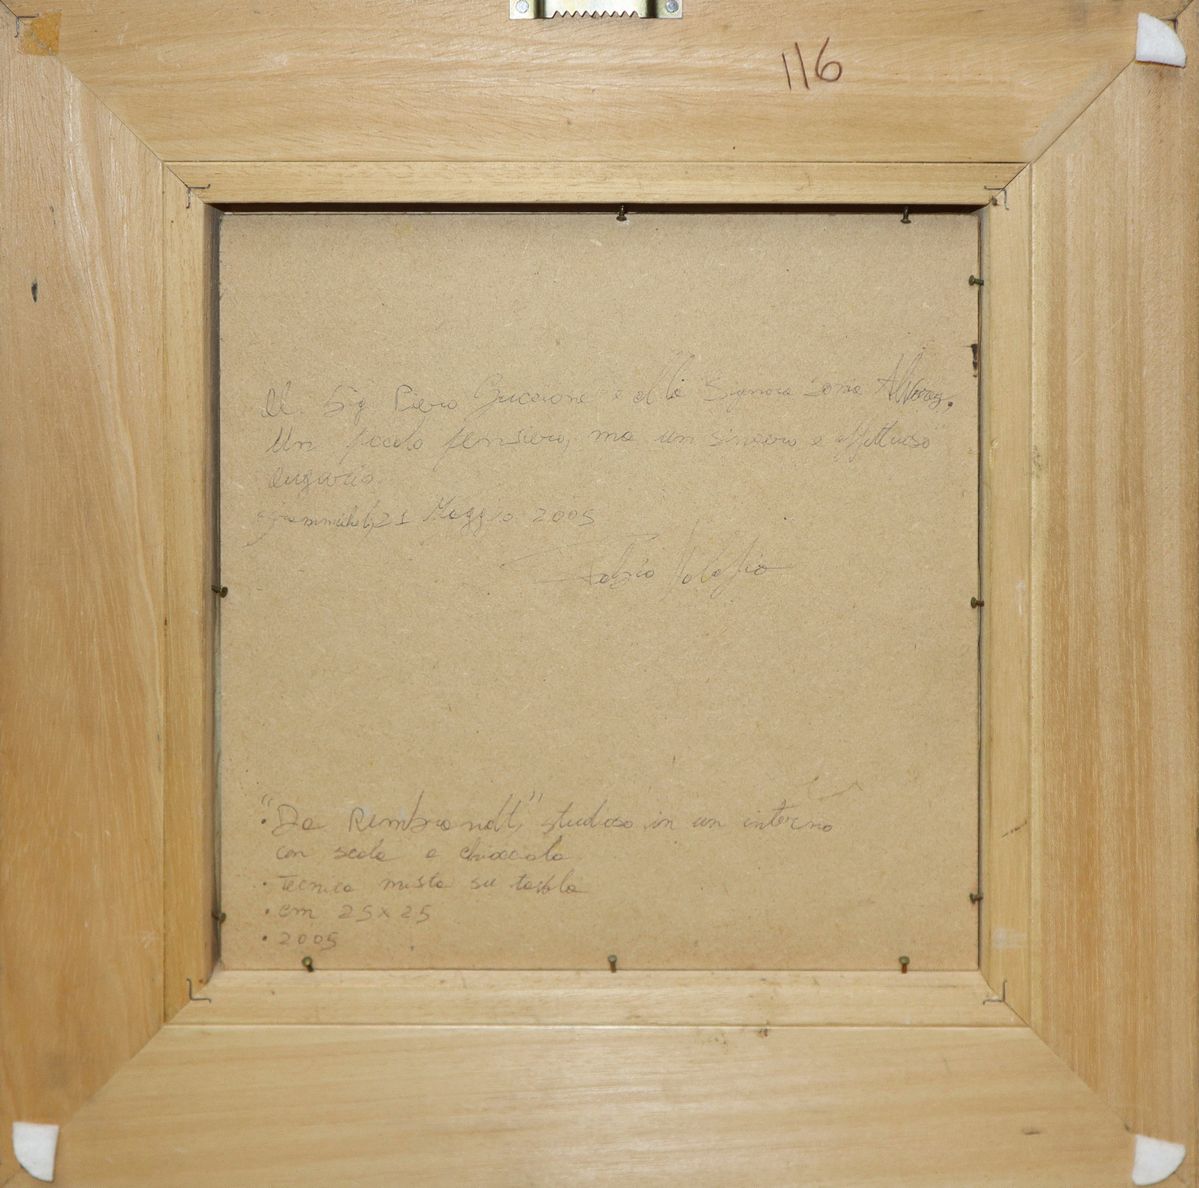 116
Al Sig Piero Guccione e alla Signora Sonia Alvarez.
Un piccolo pensiero, ma un sincero e affettuoso
augurio.
Grammichele, 21 Maggio 2005
Fabio
• "Da Rembrandt", studioso in un interno
con scala a chiocciola
• Tecnica mista su tavola
• cm 25x25
• 2005